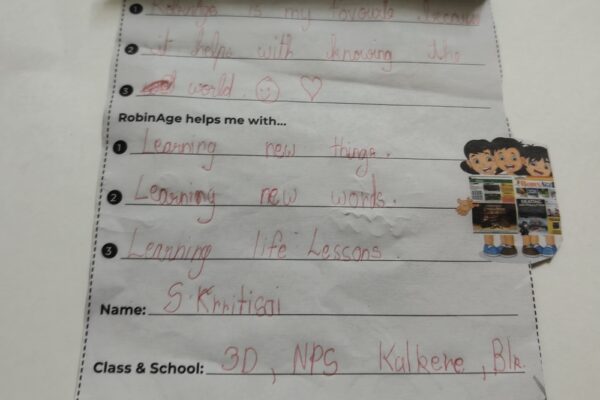 1 RobinAge is my favourite because
2 it helps with knowing the
3 world.
RobinAge helps me with...
1 Learning new things.
2 Learning new words.
3 Learning life Lessons.
Name: S. Krritisai
Class & School: 3D, NPS Kalkere, Blr.